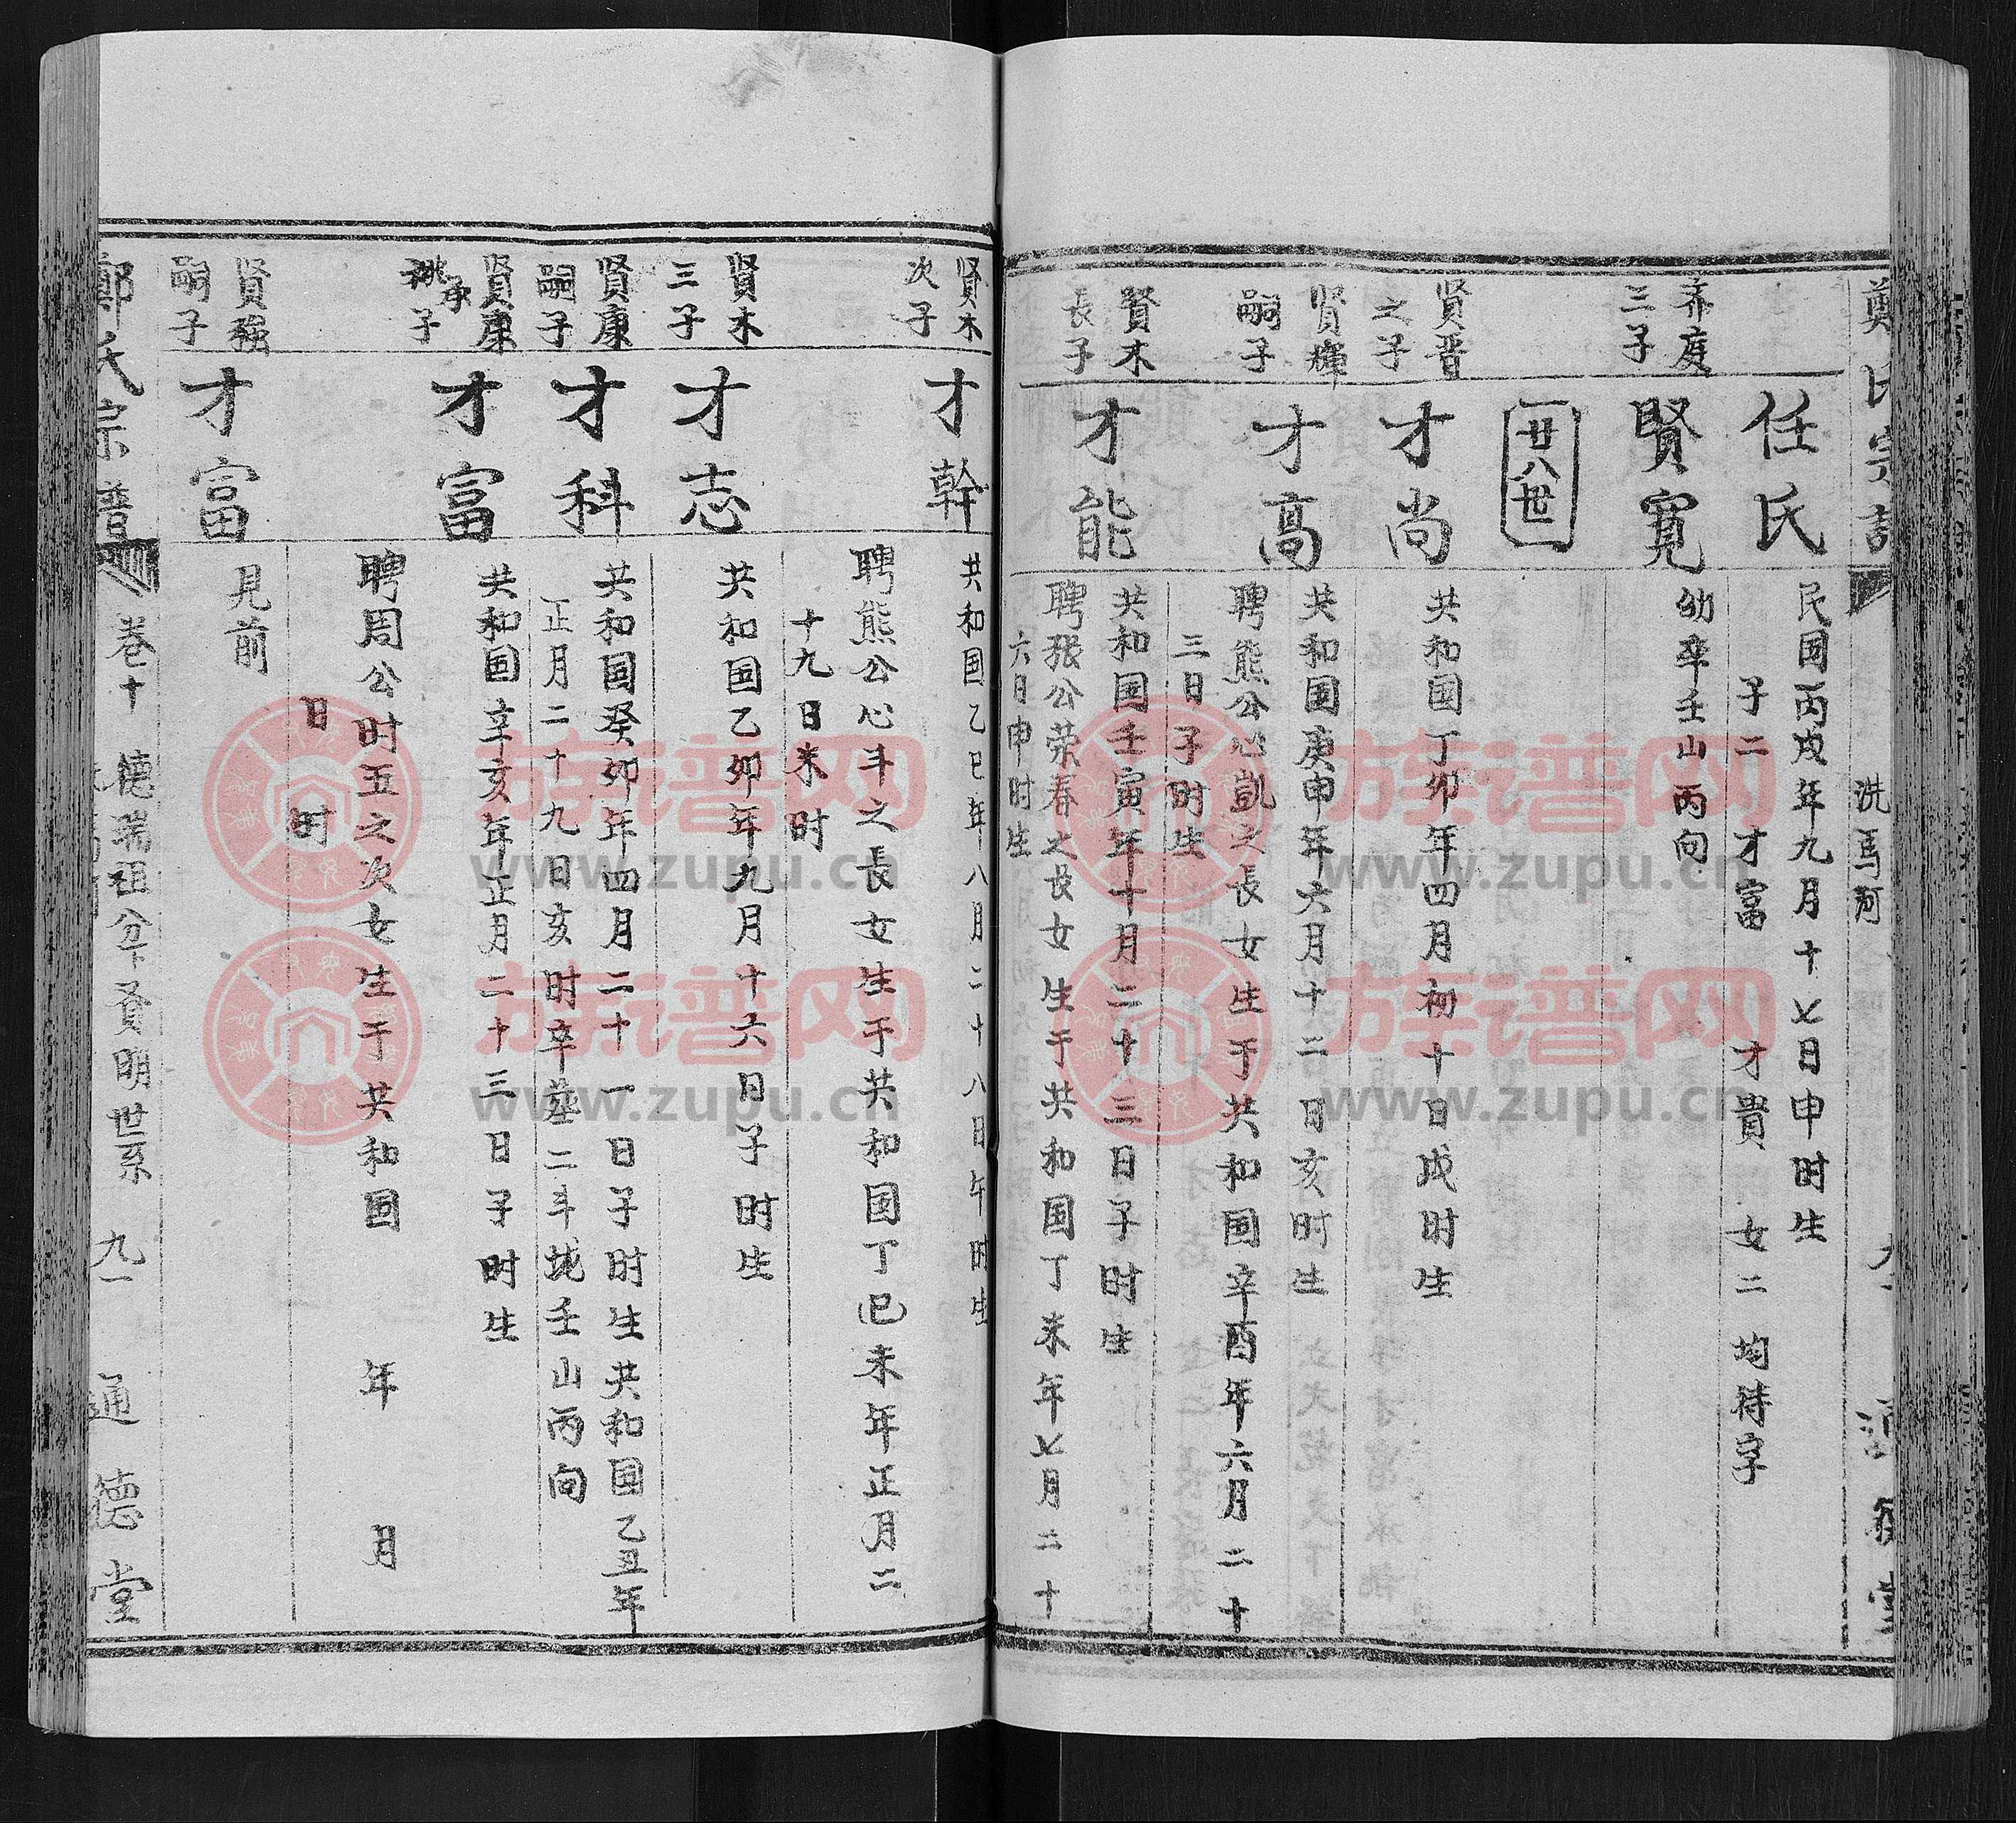 洗馬河
任氏
民国丙戌年九月十七日申时生
子二 才富 才貴 女二 均待字
齐庭
三子
賢寬
幼卒壬山丙向
廿八世
贤晋
之子
才尚
共和国丁卯年四月初十日戌时生
贤輝
嗣子
才高
共和国庚申年六月十二日亥时生
聘熊公心凱之長女生于共和国辛酉年六月二十
三日子时生
賢木
長子
才能
共和国壬寅年十月二十三日子时生
聘張公荣春之長女生于共和国丁未年七月二十
六日申时生
贤木
次子
才幹
共和国乙巳年八月二十八日午时生
聘熊公心斗之長女生于共和国丁巳未年正月二
十九日未时
贤木
三子
才志
共和国乙卯年九月十六日子时生
贤康
嗣子
才科
共和国癸卯年四月二十一日子时生共和国乙丑年
正月二十九日亥时辛墓二斗垅壬山丙向
贤康
承祧子
才富
共和国辛亥年正月二十三日子时生
聘周公时五之次女生于共和国 年 月
日 时
贤强
嗣子
才富
見前
鄭氏宗譜
卷十 德瑞祖分下贤明世系 九一 通德堂
族谱网
www.zupu.cn
族谱网
www.zupu.cn
族谱网
www.zupu.cn
族谱网
www.zupu.cn